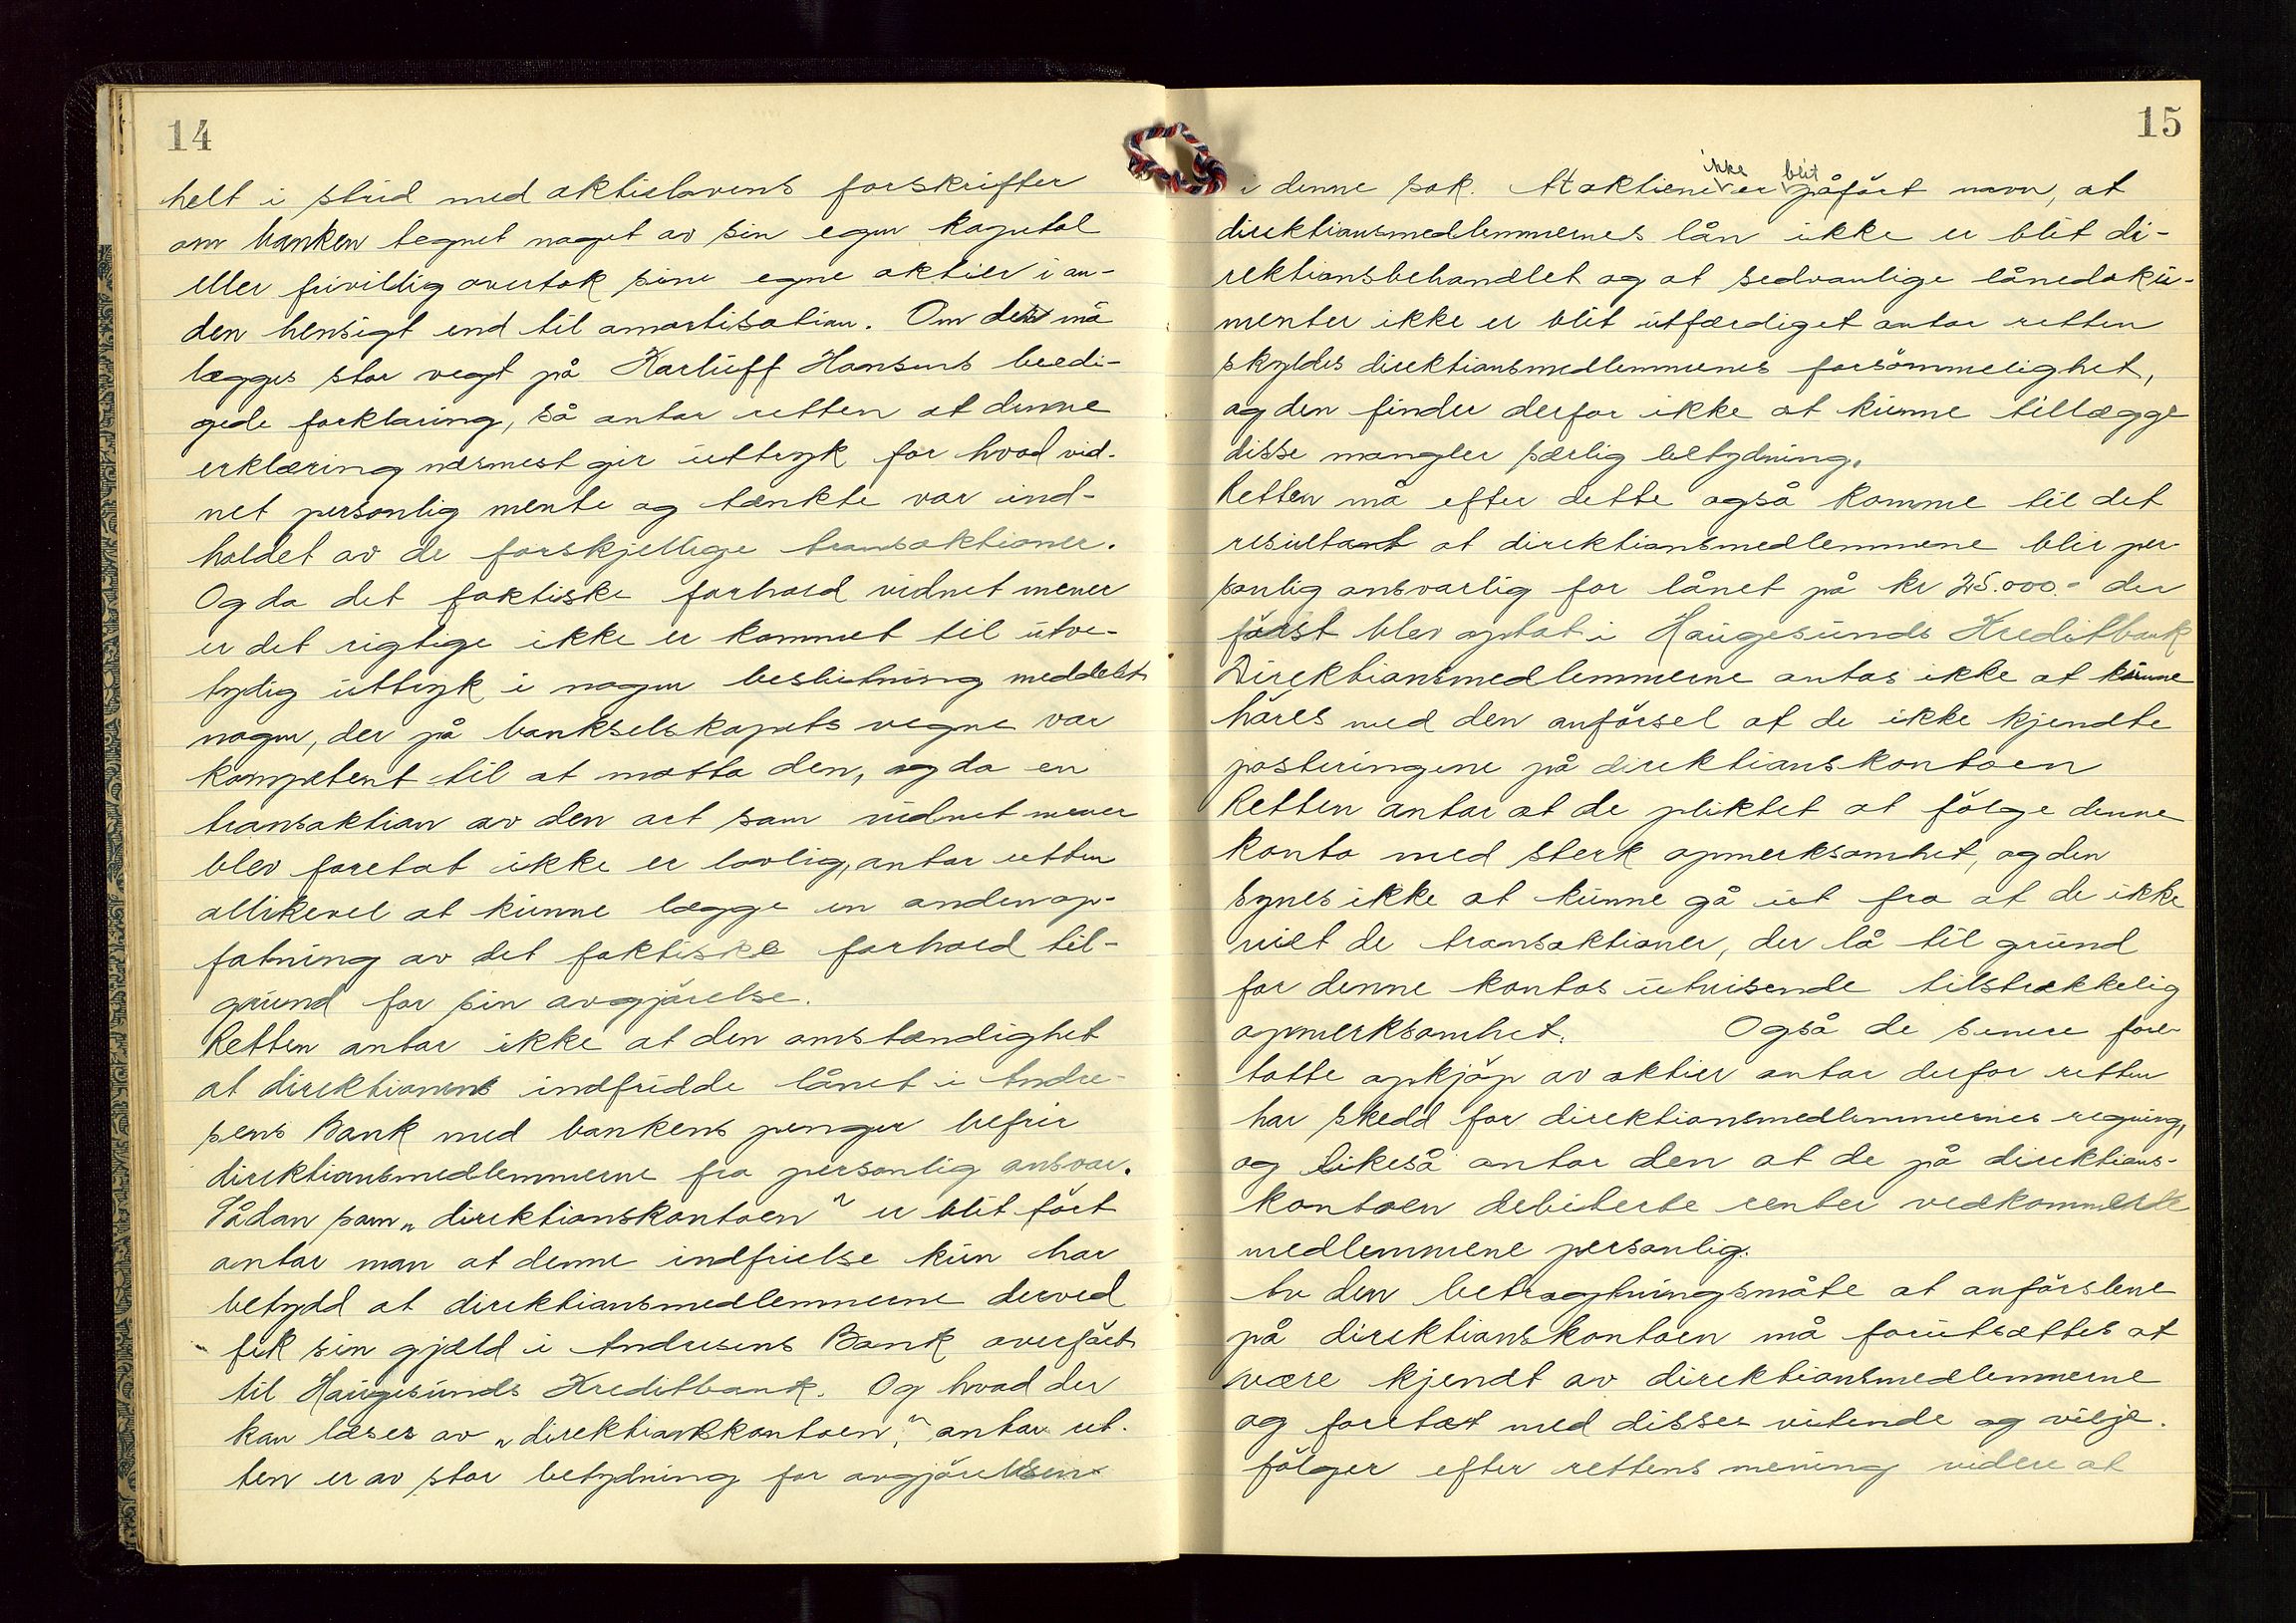 14
helt i strid med aktielovens forskrifter
om banken tegnet noget av sin egen kapital
eller frivillig overtok sine egne aktier i an-
den hensigt end til amortisation. Om der må
lægges stor vegt på Karluff Hansens beedi-
gede forklaring, så antar retten at denne
erklæring nærmest gir uttryk for hvad vid-
net personlig mente og tænkte var ind-
holdet av de forskjellige transaktioner.
Og da det faktiske forhold vidnet mener
er det rigtige ikke er kommet til utve-
tydig uttryk i nogen beslutning meddelt
nogen, der på bankselskapets vegne var
kompetent til at motta den, og da en
transaktion av den art som vidnet mener
blev foretat ikke er lovlig, antar retten
allikevel at kunne lægge en anden op-
fatning av det faktiske forhold til-
grund for sin avgjörelse.
Retten antar ikke at den omstændighet
at direktionens indfridde lånet i Andre-
sens Bank med bankens penger befrir
direktionsmedlemmerne fra personlig ansvar.
Sådan som „direktionskontoen” er blit fört
antar man at denne indfrielse kun har
betydd at direktionsmedlemmerne derved
fik sin gjæld i Andresens Bank overfört
til Haugesunds Kreditbank. Og hvad der
kan læses av „direktionskontoen,” antar ret-
ten er av stor betydning for avgjörelsen
15
i denne sak. At aktiene ikke er blit påfört navn, at
direktionsmedlemmernes lån ikke er blit di-
rektionsbehandlet og at sedvanlige lånedoku-
menter ikke er blit utfærdiget antar retten
skyldes direktionsmedlemmenes forsömmelighet,
og den finder derfor ikke at kunne tillægge
disse mangler særlig betydning.
Retten må efter dette også komme til det
resultat at direktionsmedlemmene blir per-
sonlig ansvarlig for lånet på kr 25.000.- der
först blev optat i Haugesunds Kreditbank
Direktionsmedlemmerne antas ikke at kunne
höres med den anförsel at de ikke kjendte
posteringene på direktionskontoen
Retten antar at de pliktet at fölge denne
konto med sterk opmerksomhet, og den
synes ikke at kunne gå ut fra at de ikke
viet de transaktioner, der lå til grund
for denne kontos utvisende tilstrækkelig
opmerksomhet. Også de senere fore-
tatte opkjöp av aktier antar derfor retten
har skedd for direktionsmedlemmernes regning,
og likeså antar den at de på direktions-
kontoen debiterte renter vedkommer
medlemmene personlig.
Av den betragtningsmåte at anförslene
på direktionskontoen må forutsættes at
være kjendt av direktionsmedlemmerne
og foretat med disses vitende og vilje.
fölger efter rettens mening videre at